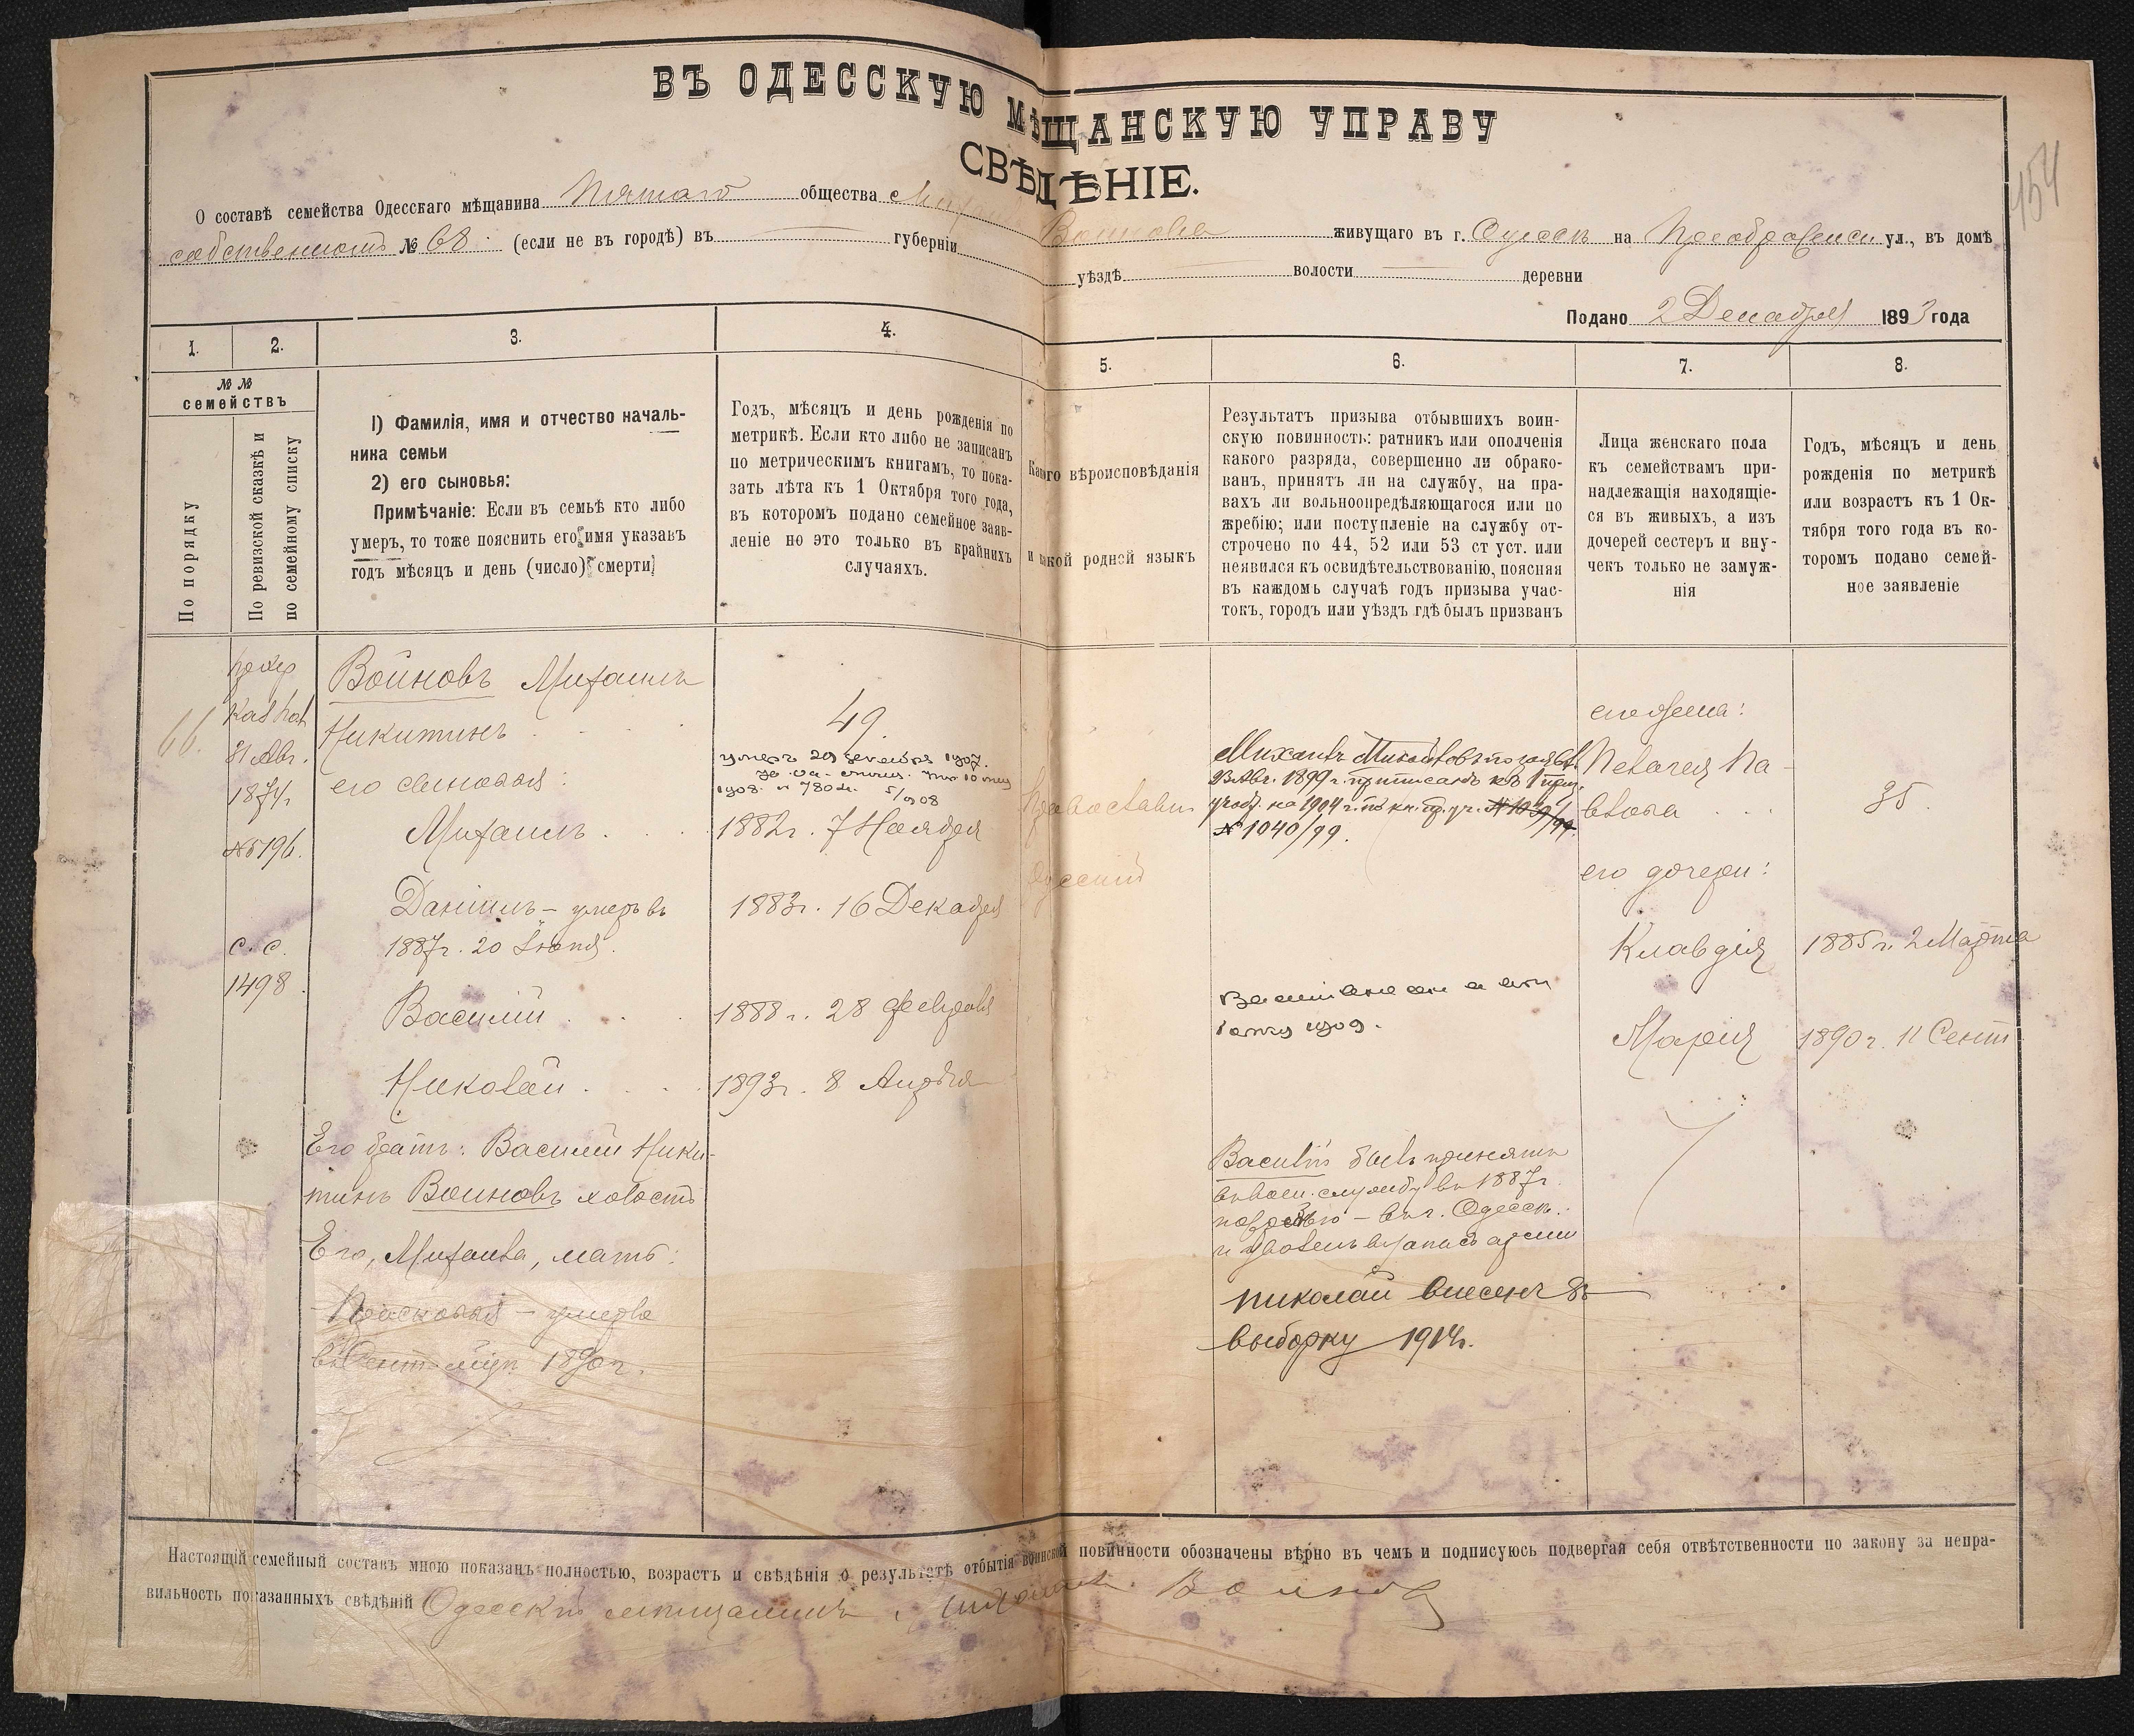 ВЪ ОДЕССКУЮ МѢЩАНСКУЮ УПРАВУ
СВѢДѢНІЕ.
154
О составѣ семейства Одесскаго мѣщанина Пятаго общества Михаила Воинова живущаго въ г. Одессѣ на Преображенск ул., въ домѣ
собственномъ № 68 (если не въ городѣ) въ губерніи уѣздѣ волости деревни
Подано 2 Декабря 1893 года
1.
2.
3.
4.
5.
6.
7.
8.
№ №
семействъ
По порядку
По ревизской сказкѣ и
по семейному списку
1) Фамилія, имя и отчество началь-
ника семьи
2) его сыновья:
Примѣчаніе: Если въ семьѣ кто либо
умеръ, то тоже пояснить его имя указавъ
годъ мѣсяцъ и день (число) смерти
Годъ, мѣсяцъ и день рожденія по
метрикѣ. Если кто либо не записанъ
по метрическимъ книгамъ, то пока-
зать лѣта къ 1 Октября того года,
въ которомъ подано семейное заяв-
леніе но это только въ крайнихъ
случаяхъ.
Какого вѣроисповѣданія
и какой родной языкъ
Результатъ призыва отбывшихъ воин-
скую повинность: ратникъ или ополченія
какого разряда, совершенно ли обрако-
ванъ, принятъ ли на службу, на пра-
вахъ ли вольноопредѣляющагося или по
жребію; или поступленіе на службу от-
строчено по 44, 52 или 53 ст уст. или
неявился къ освидѣтельствованію, поясняя
въ каждомъ случаѣ годъ призыва учас-
токъ, городъ или уѣздъ гдѣ былъ призванъ
Лица женскаго пола
къ семействамъ при-
надлежащія находящіе-
ся въ живыхъ, а изъ
дочерей сестеръ и вну-
чекъ только не замуж-
нія
Годъ, мѣсяцъ и день
рожденія по метрикѣ
или возрастъ къ 1 Ок-
тября того года въ ко-
торомъ подано семей-
ное заявленіе
66.
31 Авг.
1874г
№5196.
с. с.
1498.
Воиновъ Михаилъ
Никитинъ
его сыновья:
Михаилъ
Даніилъ – умеръ въ
1887г. 20 Іюня.
Василій
Николай
Его братъ: Василій Ники-
тинъ Воиновъ холостъ
Его, Михаила, мать:
Прасковья – умерла
въ Сент. 1890г.
49
умеръ 29 1907.
1908. № 780
1882г. 7 Ноября
1883г. 16 Декабря
1888г. 28 Февраля
1893г. 8 Апрѣля
Православн
Русскій
Михаилъ
23 Авг. 1899г. приписанъ къ 1 приз.
на 1904 г. по кн. пр. уч.
№ 1040/99.
1909.
Василій былъ принятъ
въ воен. службу въ 1887г.
въ г. Одессѣ
и уволенъ въ запасъ арміи
Николай внесенъ въ
выборку 1914г.
его жена:
Пелагея Па-
влова
его дочери:
Клавдія
Марія
35.
1885г. 2 Марта
1890г. 11 Сент
Настоящій семейный составъ мною показанъ полностью, возрастъ и свѣдѣнія о результатѣ отбытія воинской повинности обозначены вѣрно въ чемъ и подписуюсь подвергая себя отвѣтственности по закону за непра-
вильность показанныхъ свѣдѣній Одесскій мѣщанинъ Михаилъ Воиновъ